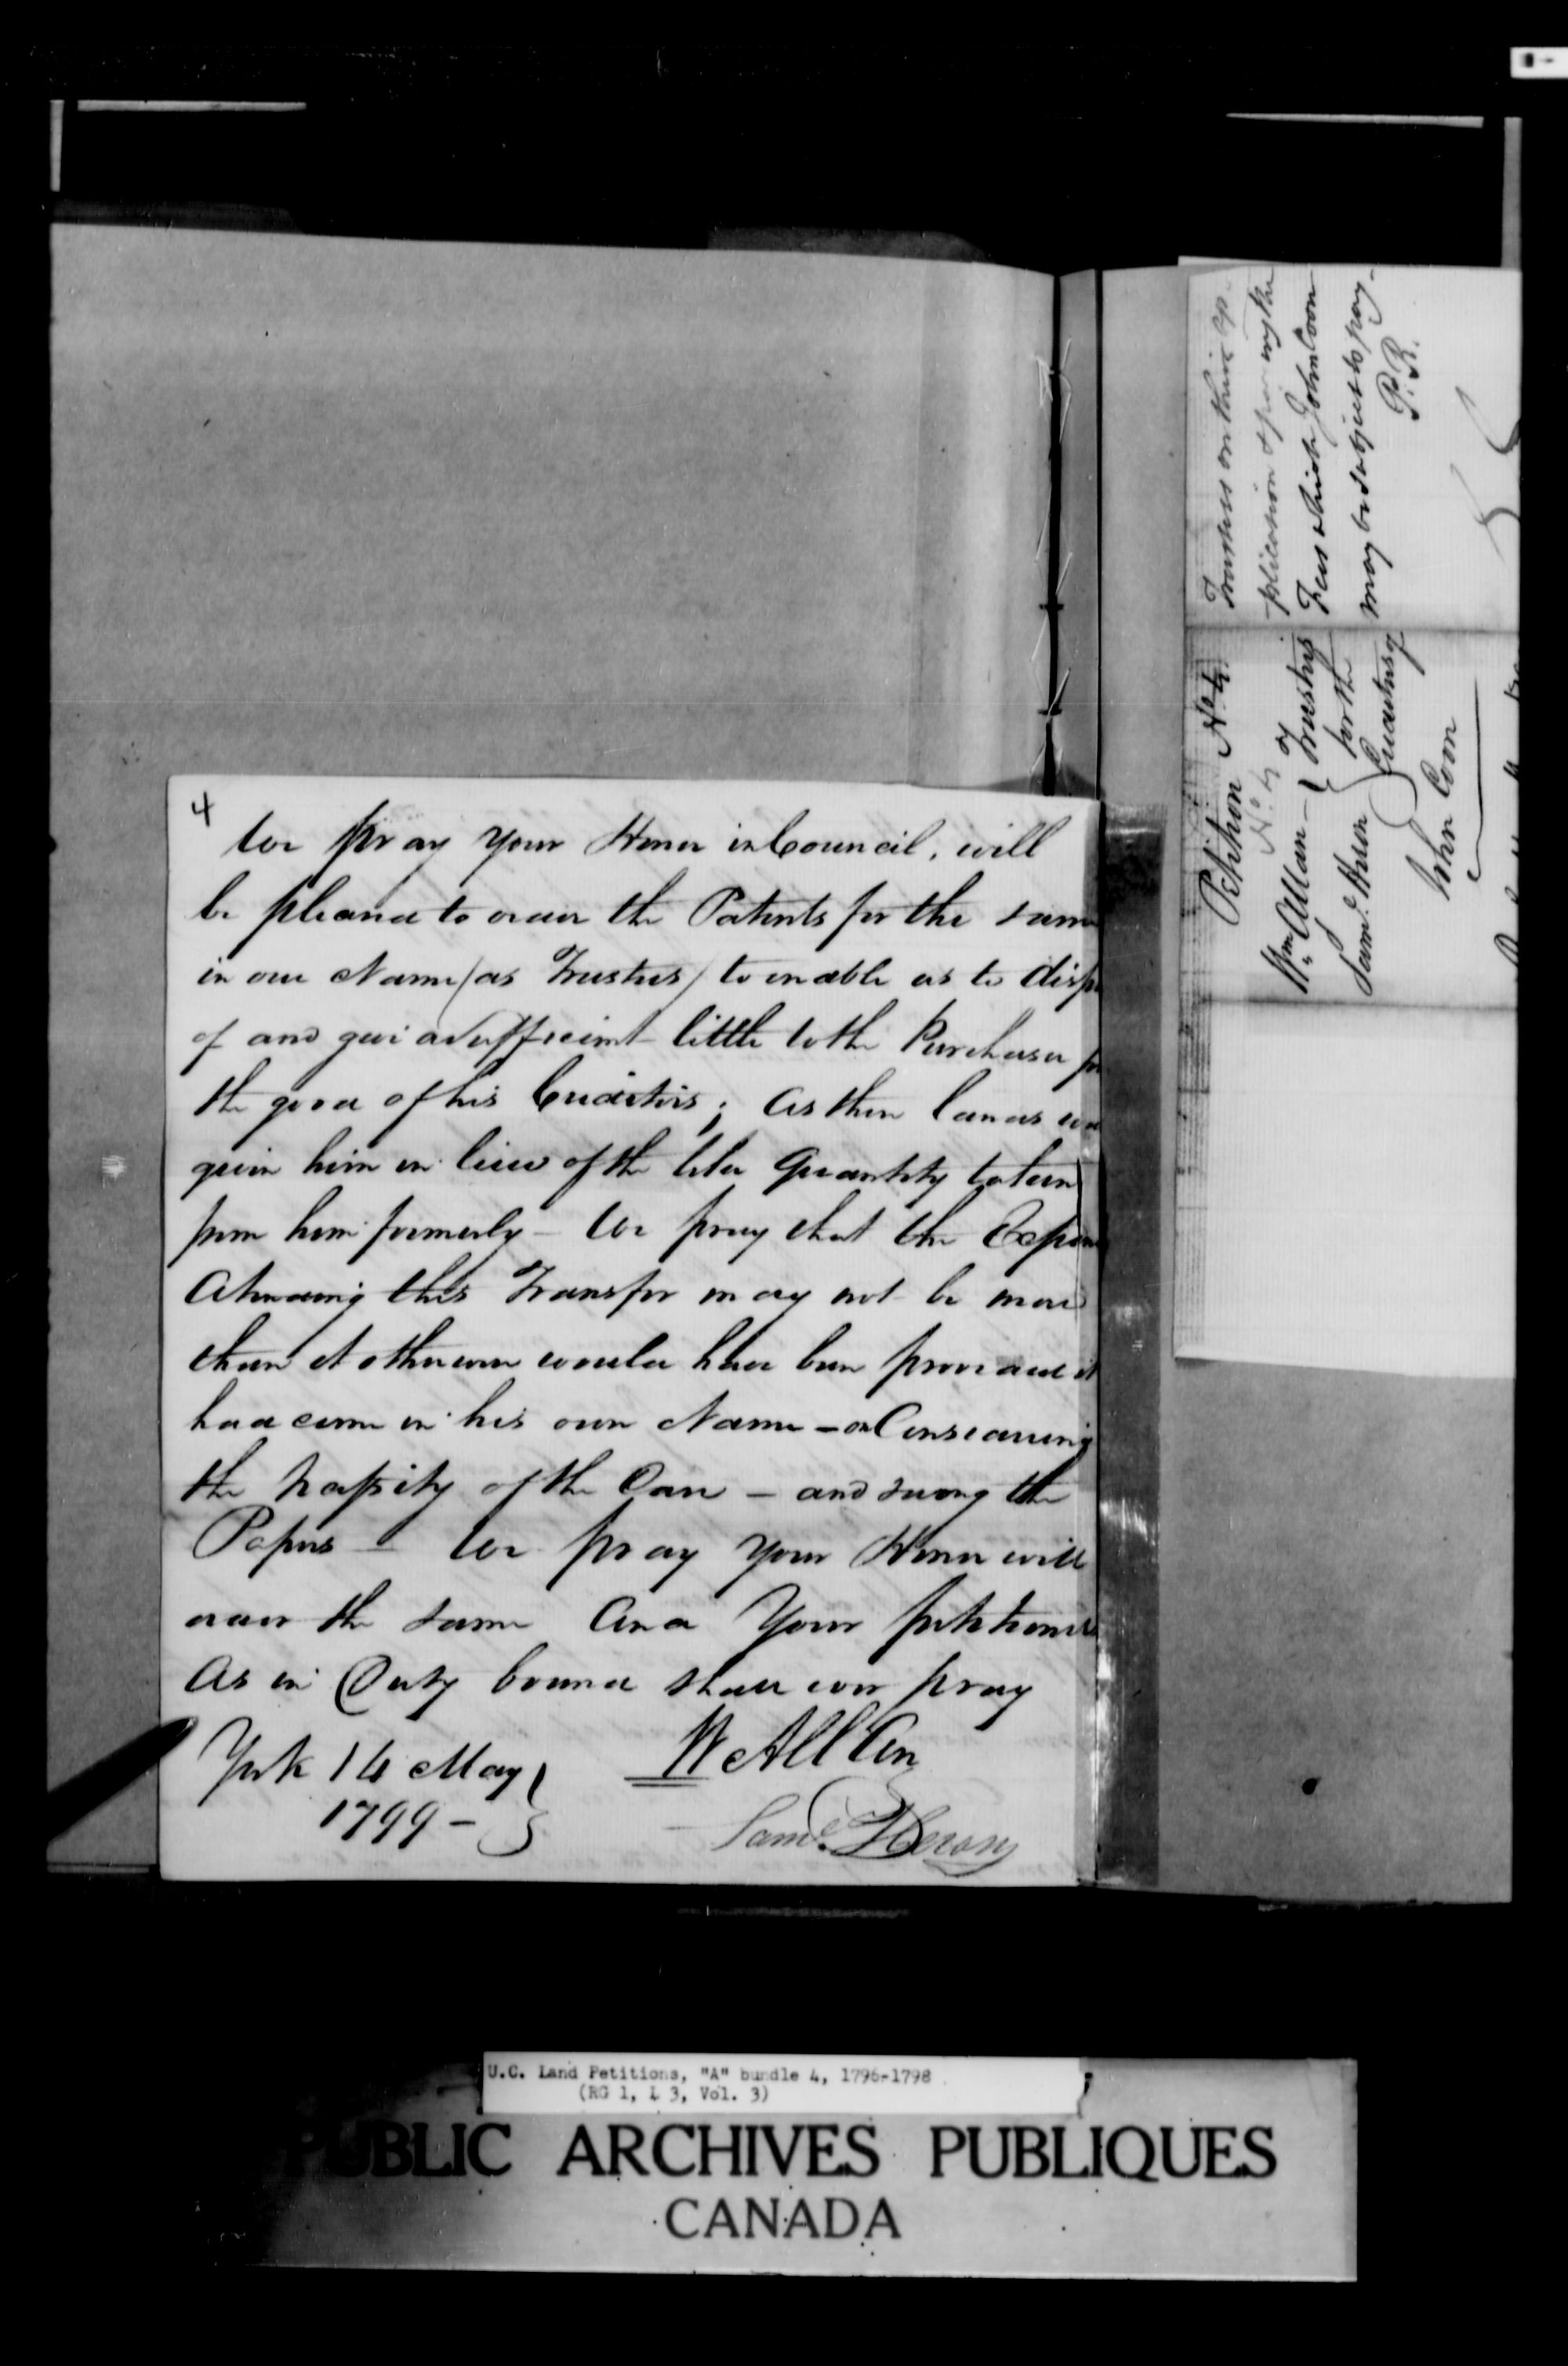 4
We pray your Honor in Council, will
be pleased to order the Patents for the same
in our Name (as Trustees) to enable us to disp
of and give a sufficient tittle to the Purchaser for
the good of his Creditors; as these lands were
given him in lieu of the like Quantity taken
from him formerly - We pray that the Expen
Attending this Transfer may not be more
than it otherwise would have been provided it
had come in his own Name - on Considering
the of the Case - and seeing the
Papers - We pray your Honor will
order the same And Your petitioners
As in Duty bound shall ever pray
York 14 May
1799 -
W Allan
Saml. Heron
Petition No 4
No. 4 of
Wm Allan - Trustees
for the
Saml. Heron Creditors of
John Coon
Trustees on their ap-
plication & paying the
Fees which John Coon
may be subject to pay -
P. R.
U.C. Land Petitions, "A" bundle 4, 1796-1798
(RG 1, L 3, Vol. 3)
PUBLIC ARCHIVES PUBLIQUES
CANADA